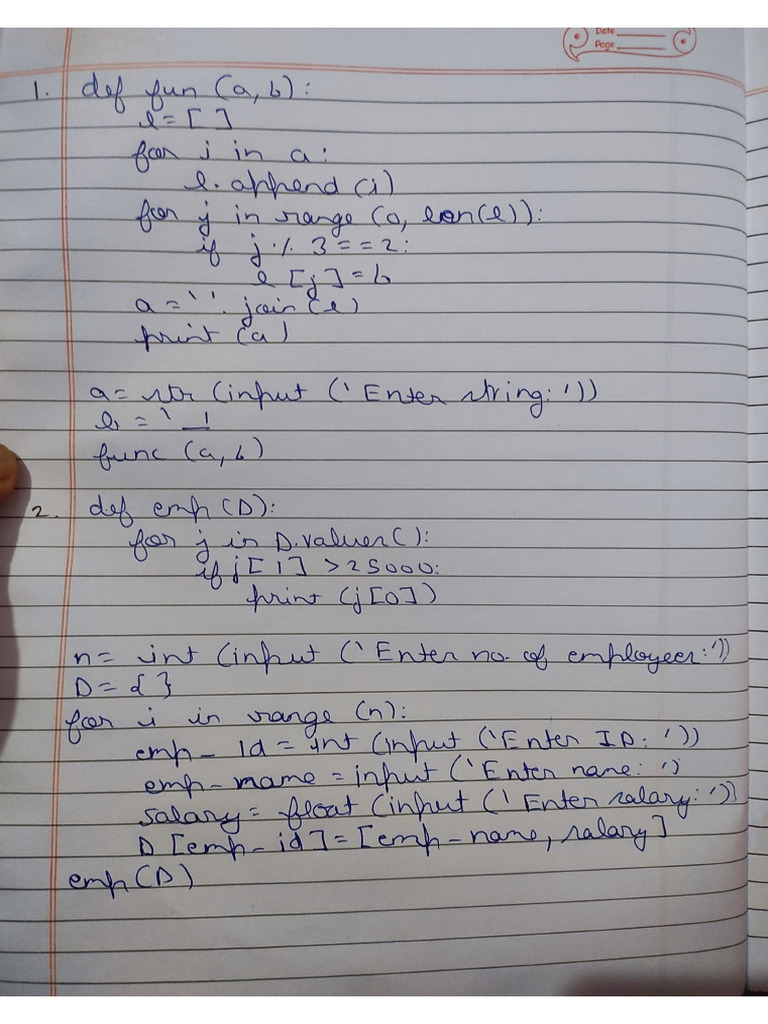 Date
Page
1. def fun (a, b):
l = [ ]
for i in a:
l.append (i)
for j in range (0, len(l)):
if j % 3 == 2:
l [j] = b
a = ''. join (l)
print (a)
a = str (input ('Enter string: '))
b = '_'
func (a, b)
2. def emp (D):
for j in D.values ():
if j [1] > 25000:
print (j[0])
n = int (input ('Enter no. of employees: '))
D = { }
for i in range (n):
emp_Id = int (input ('Enter ID: '))
emp_name = input ('Enter name: ')
salary = float (input ('Enter salary: '))
D [emp_id] = [emp_name, salary]
emp (D)